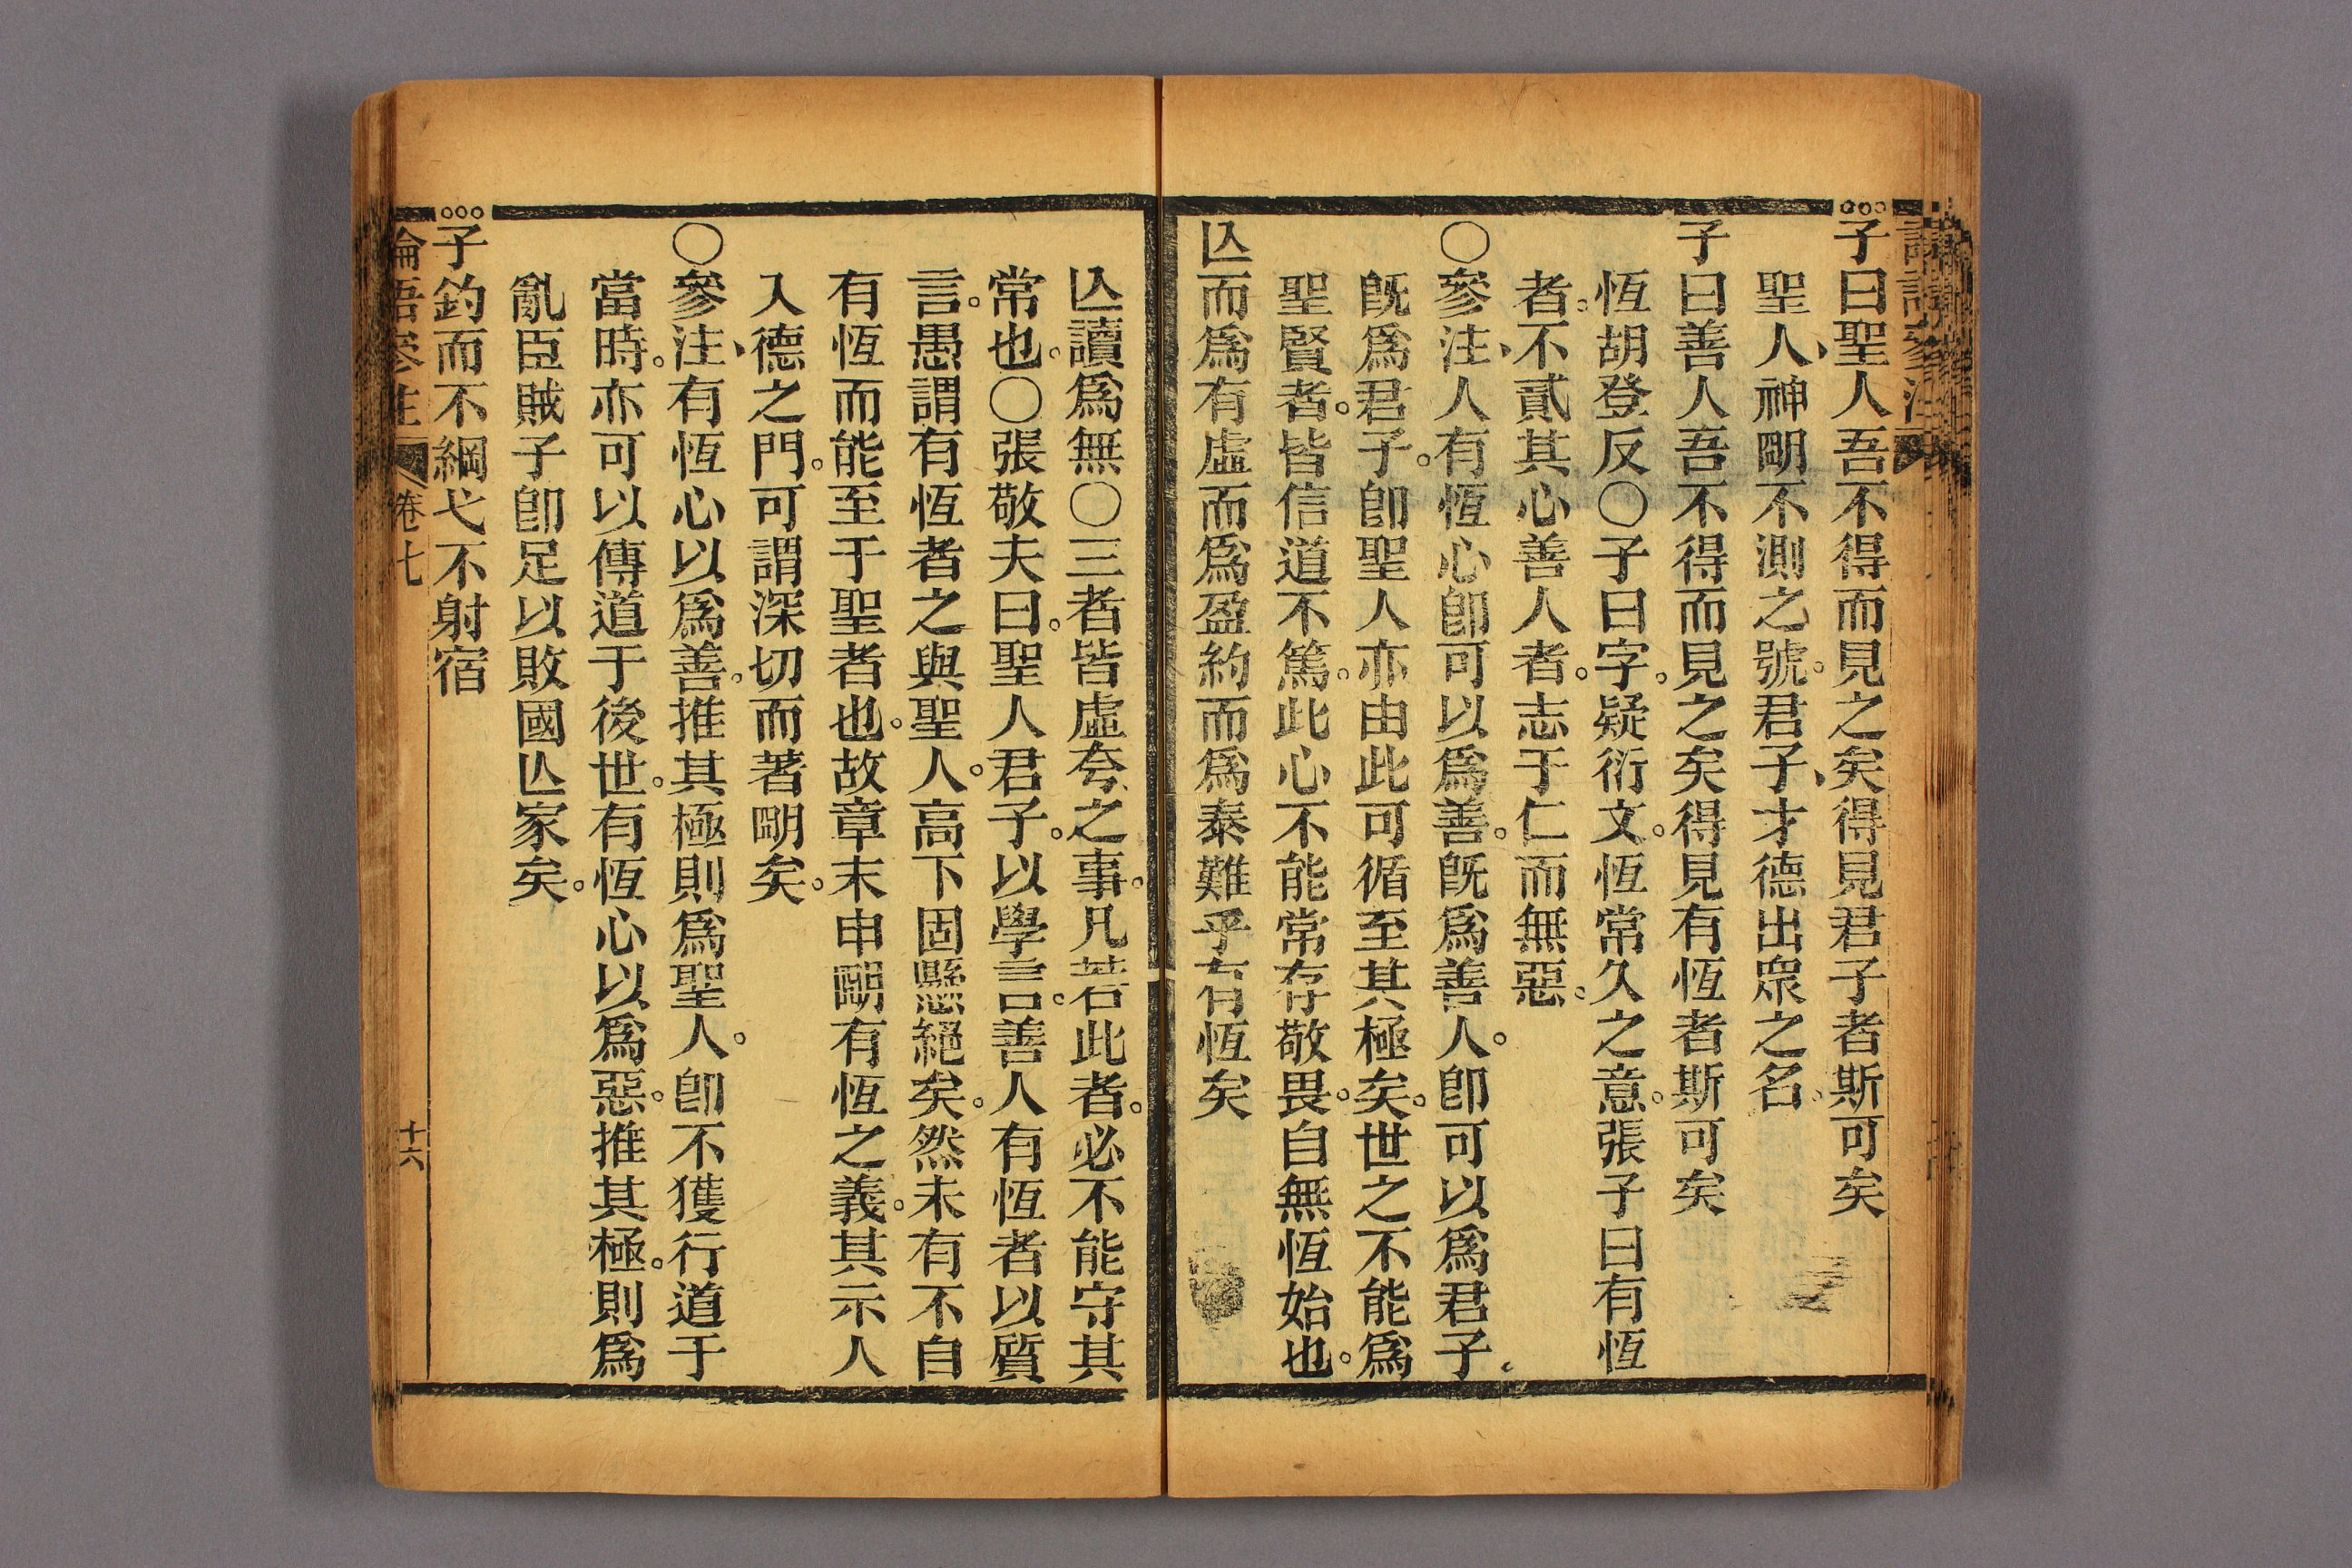 子曰聖人吾不得而見之矣得見君子者斯可矣
聖人、神朙不測之號。君子、才德出眾之名。
子曰善人吾不得而見之矣得見有恆者斯可矣
恆胡登反〇子曰字。疑衍文。恆常久之意。張子曰有恆
者。不貳其心善人者。志于仁而無惡。
〇參注、人有恆心卽可以爲善。旣爲善人。卽可以爲君子。
旣爲君子。卽聖人亦由此可循至其極矣。世之不能爲
聖賢者。皆信道不篤。此心不能常存敬畏。自無恆始也。
亾而爲有虛而爲盈約而爲泰難乎有恆矣
亾讀爲無〇三者皆虛夸之事。凡若此者。必不能守其
常也。〇張敬夫曰。聖人君子。以學言。善人有恆者以質
言。愚謂有恆者之與聖人。高下固懸絕矣。然未有不自
有恆而能至于聖者也。故章末申朙有恆之義。其示人
入德之門。可謂深切而著朙矣。
〇參注、有恆心以爲善。推其極則爲聖人。卽不獲行道于
當時。亦可以傳道于後世。有恆心以爲惡。推其極。則爲
亂臣賊子卽足以敗國亾家矣。
子釣而不綱弋不射宿
論語參注 卷七 十六